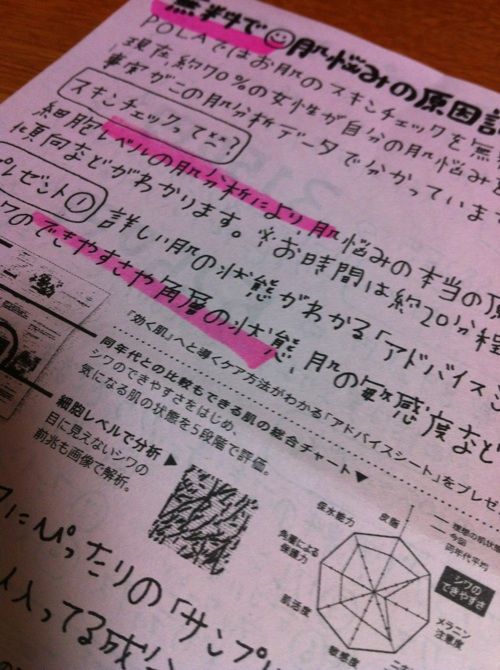 無料で☺肌悩みの原因
POLAではお肌のスキンチェックを無
現在約70%の女性が自分の肌悩み
事実がこの肌分析データで分かっていま
スキンチェックって××?
細胞レベルの肌分析により肌悩みの本当の原
傾向などがわかります。※お時間は約20分程
プレゼント① 詳しい肌の状態がわかる「アドバイス
のできやすさや角層の状態、肌の敏感度など
「効く肌」へと導くケア方法がわかる「アドバイスシート」をプレゼ
同年代との比較もできる肌の総合チャート▼
シワのできやすさをはじめ、
気になる肌の状態を5段階で評価。
細胞レベルで分析▶
目に見えないシワの
前兆も画像で解析。
保水能力
皮脂
理想の肌状
今回
同年代平均
シワの
できやすさ
メラニン
注意度
敏感度
肌活度
角層による
保護力
にぴったりの「サンプ
入ってる成分